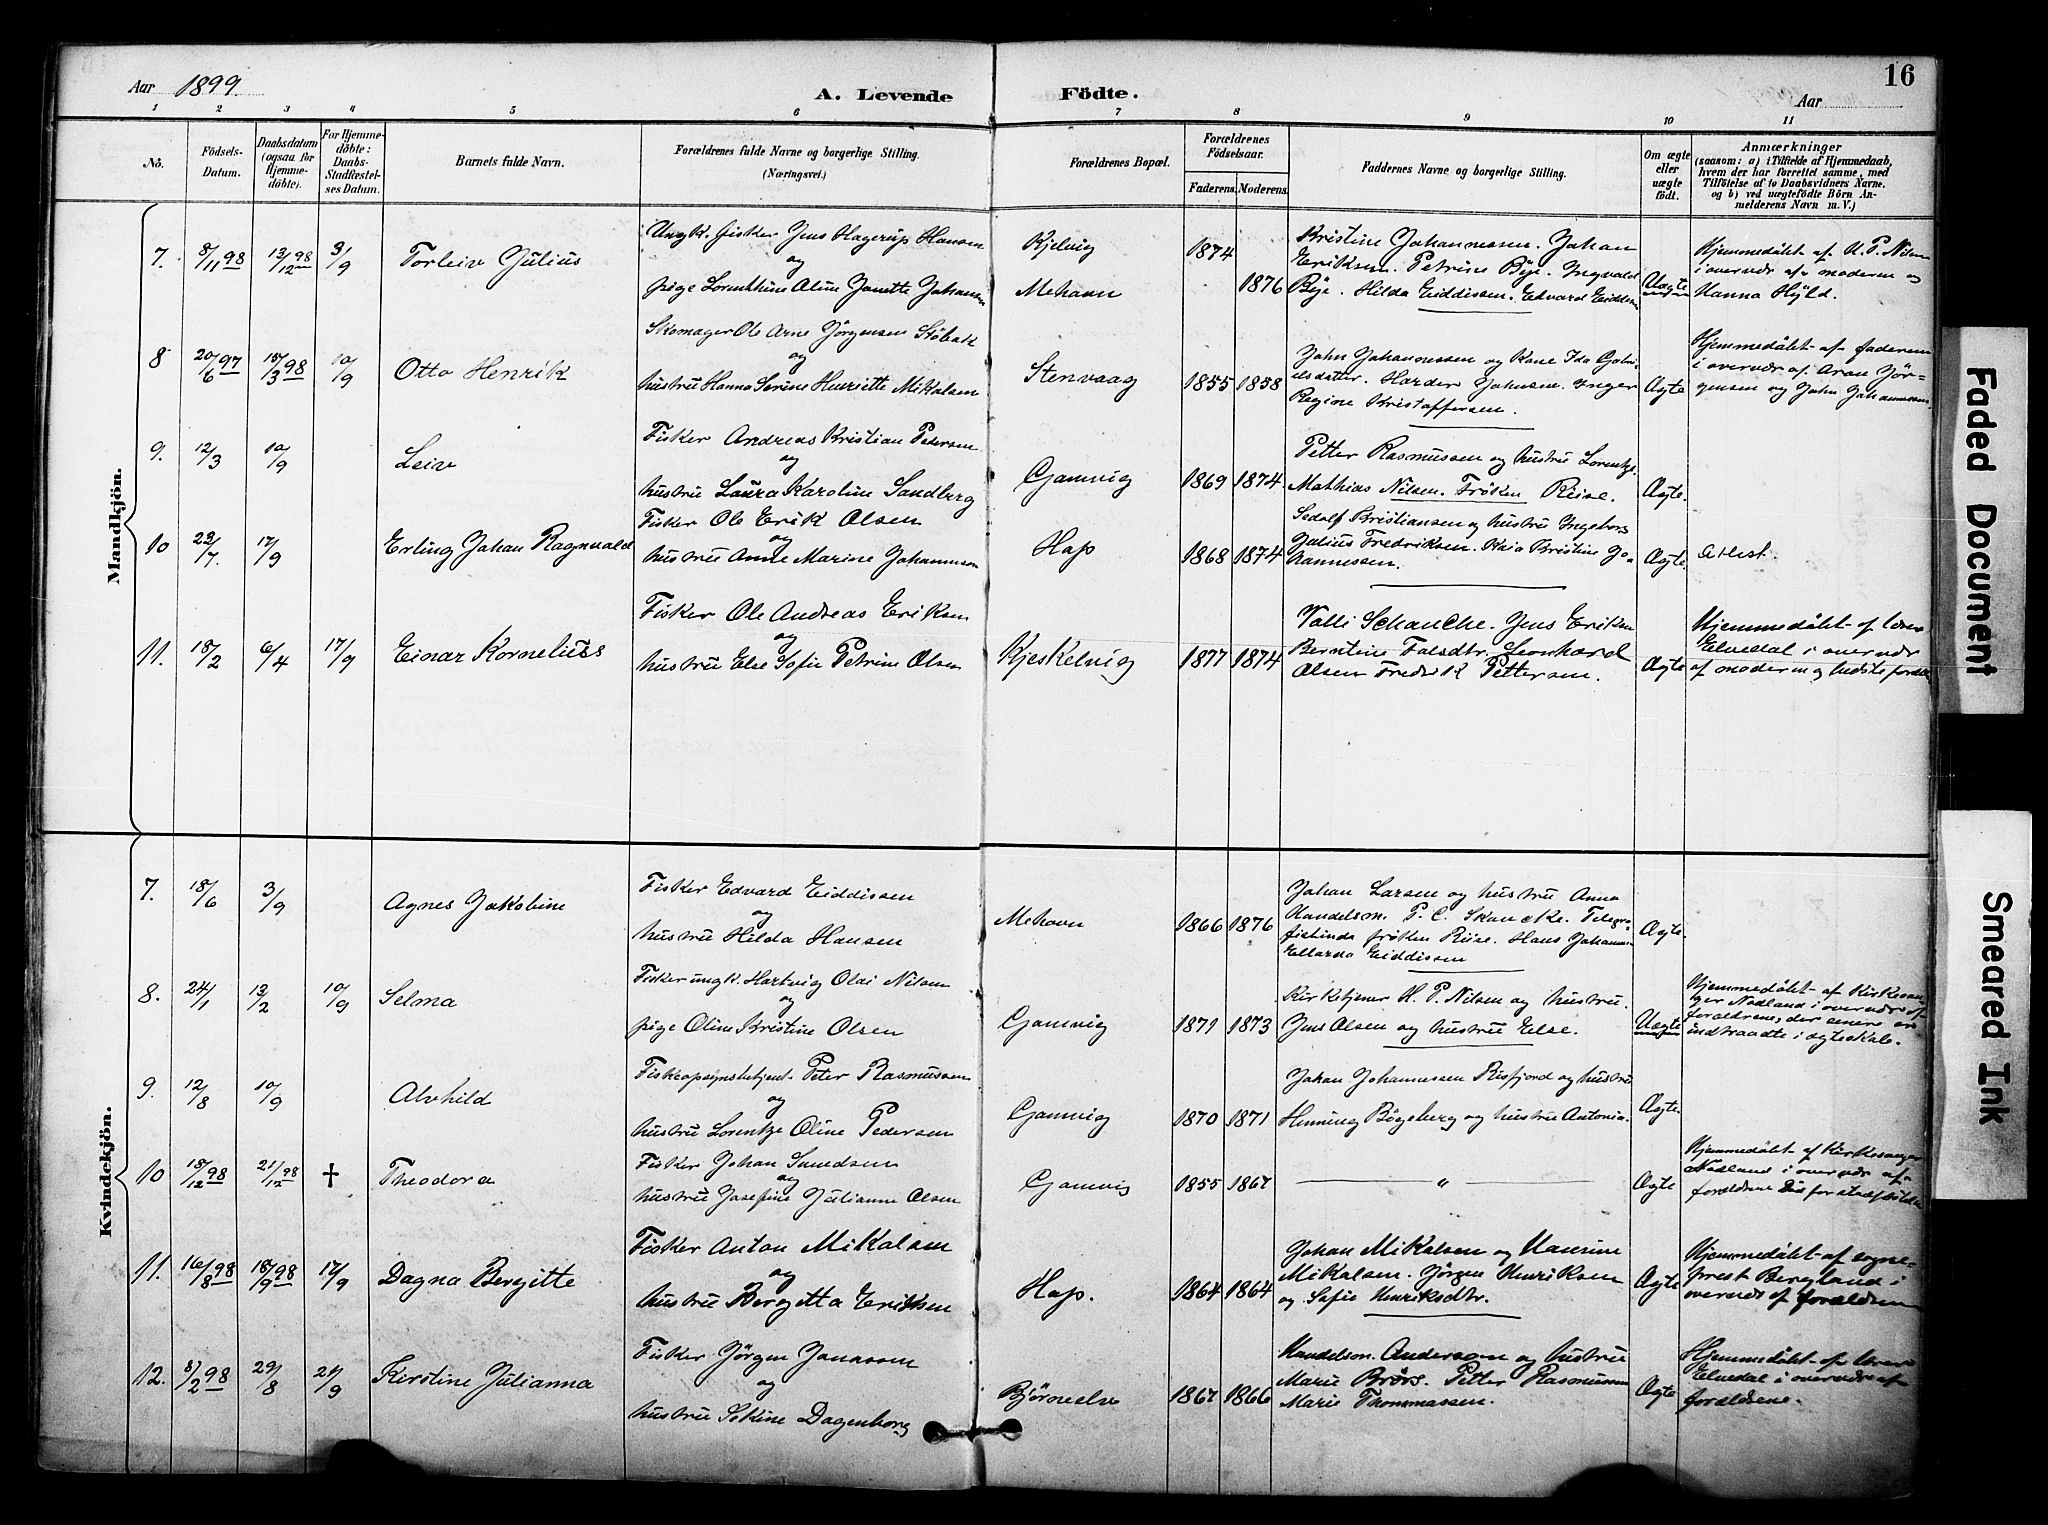 Aar 1899.
A. Levende Födte.
Aar
16
1 2 3 4 5 6 7 8 9 10 11
No.
Födsels-Datum.
Daabsdatum (ogsaa for Hjemmedöbte).
For Hjemmedöbte: Daabs-Stadfæstelses Datum.
Barnets fulde Navn.
Forældrenes fulde Navne og borgerlige Stilling. (Næringsvei.)
Forældrenes Bopæl.
Forældrenes Födselsaar.
Faderens. Moderens.
Faddernes Navne og borgerlige Stilling.
Om ægte eller uægte födt.
Anmærkninger
(saasom: a) i Tilfælde af Hjemmedaab,
hvem der har forrettet samme, med
Tilföielse af to Daabsvidners Navne.
og b) ved uægtefödte Börn An-
melderens Navn m. V.)
Mandkjön.
7. 8/11 98 13/12 98 3/9 Torleiv Julius
Ungk. fisker Jens Hagerup Hansen
og
pige Lorenthine Aline Janette Johansen
Kjelvig
Mehavn
1874 1876
Kristine Johannessen. Johan
Eriksen. Petrine Bye. Ingvald
Bye. Hilda Eiddissen. Edvard Eiddissen
Uægte
Hjemmedøbt af H. P. Nilsen
i overvær af moderen og
Hanna Hyld.
8 20/6 97 18/3 98 10/9 Otto Henrik
Skomager Ole Arne Jörgensen Stöbak
og
hustru Hanna Serine Henriette Mikalsen
Stenvaag
1855 1858
John Johannessen og Kone Ida Gabri-
elsdatter. Inger
Regine Kristoffersen.
Ægte
Hjemmedøbt af faderen
i overvær af Aron Jör-
gensen og John Johannessen.
9. 12/3 10/9 Leiv
Fisker Andreas Kristian Pedersen
og
hustru Laura Karoline Sandberg
Gamvig
1869 1874
Petter Rasmussen og hustru Lorentze.
Mathias Nilsen. Frøken Riise.
Ægte.
10 23/7. 17/9 Erling Johan Ragnvald
Fisker Ole Erik Olsen
og
hustru Anne Marine Johannesen
Hop
1868 1874
Sedolf Kristiansen og hustru Ingeborg
Julius Fredriksen. Kaia Kristine Jo-
hannessen.
Ægte.
Attest.
11. 18/2 6/4 17/9 Einar Kornelius
Fisker Ole Andreas Eriksen
og
hustru Else Sofie Petrine Olsen
Kjeskelvig
1877 1874
Valli Schanche. Jens Eriksen
Berntine Falsdtr. Leonhard
Olsen Fredrik Pettersen.
Ægte
Hjemmedøbt af lærer
Elvedal i overvær
af moderen og
Kvindekjön.
7. 18/6 3/9 Agnes Jakobine
Fisker Edvard Eiddissen
og
hustru Hilda Hansen
Mehavn
1866 1876
Johan Larsen og hustru Anna
Handelsm. P. C. Skancke. Telegra-
fistinde frøken Riise. Hans Johannesen
Ellarda Eiddissen
Ægte.
8. 24/1 13/2 10/9 Selma
Fisker ungk. Hartvig Olai Nilsen
og
pige Oline Kristine Olsen
Gamvig
1871 1873
Kirketjener H. P. Nilsen og hustru.
Jens Olsen og hustru Else.
Uægte
Hjemmedøbt af Kirkesan-
ger Nodland i overvær af
forældrene, der senere er
indtraadte i ægteskab.
9. 12/8 10/9 Alvhild
Fiskeopsynsbetjent Peter Rasmussen
og
hustru Lorentze Oline Pedersen
Gamvig
1870 1871
Johan Johannessen Risfjord og hustru
Henning Bøgeberg og hustru Antonia.
Ægte.
10 18/12 98 21/12 98 † Theodora
Fisker Johan Smedsen
og
hustru Josefine Julianne Olsen
Gamvig
1855 1867
— " —
Ægte
Hjemmedøbt af Kirkesanger
Nodland i overvær af
forældrene Død før stadfæstelse
11. 16/8 98 18/9 98 17/9 Dagna Bergitte
Fisker Anton Mikalsen
og
hustru Bergitta Eriksen
Hop.
1864 1864
Johan Mikalsen og Haurine
Mikalsen. Jørgen Henriksen
og Sofie Henriksdtr.
Ægte
Hjemmedøbt af sogne-
prest Bergland i
overvær af forældrene
12. 8/2 98 29/8 21/9 Kirstine Julianna
Fisker Jörgen Jonassen
og
hustru Sekine Dagenborg
Björneelve
1867 1866
Handelsm. Andersen og hustru
Marie Brørs. Petter Rasmussen
Marie Thommassen.
Ægte
Hjemmedøbt af lærer
Elvedal i overvær af
forældrene.
Faded Document
Smeared Ink